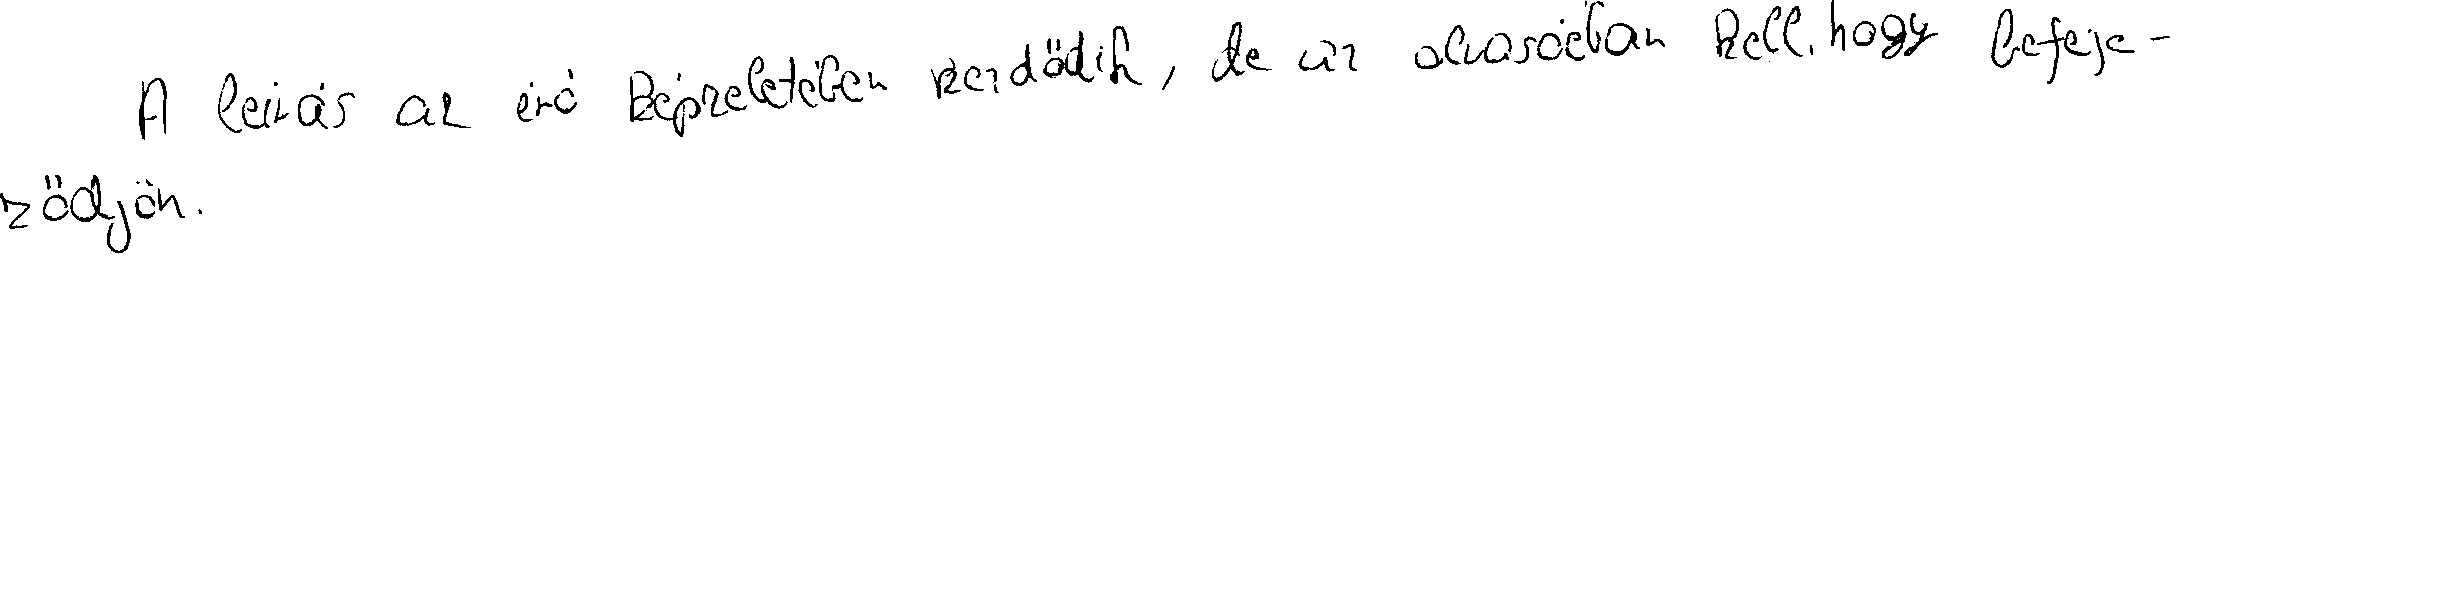 A leírás az író képzeletében kezdődik, de az olvasóéban kell, hogy befeje-
ződjön.